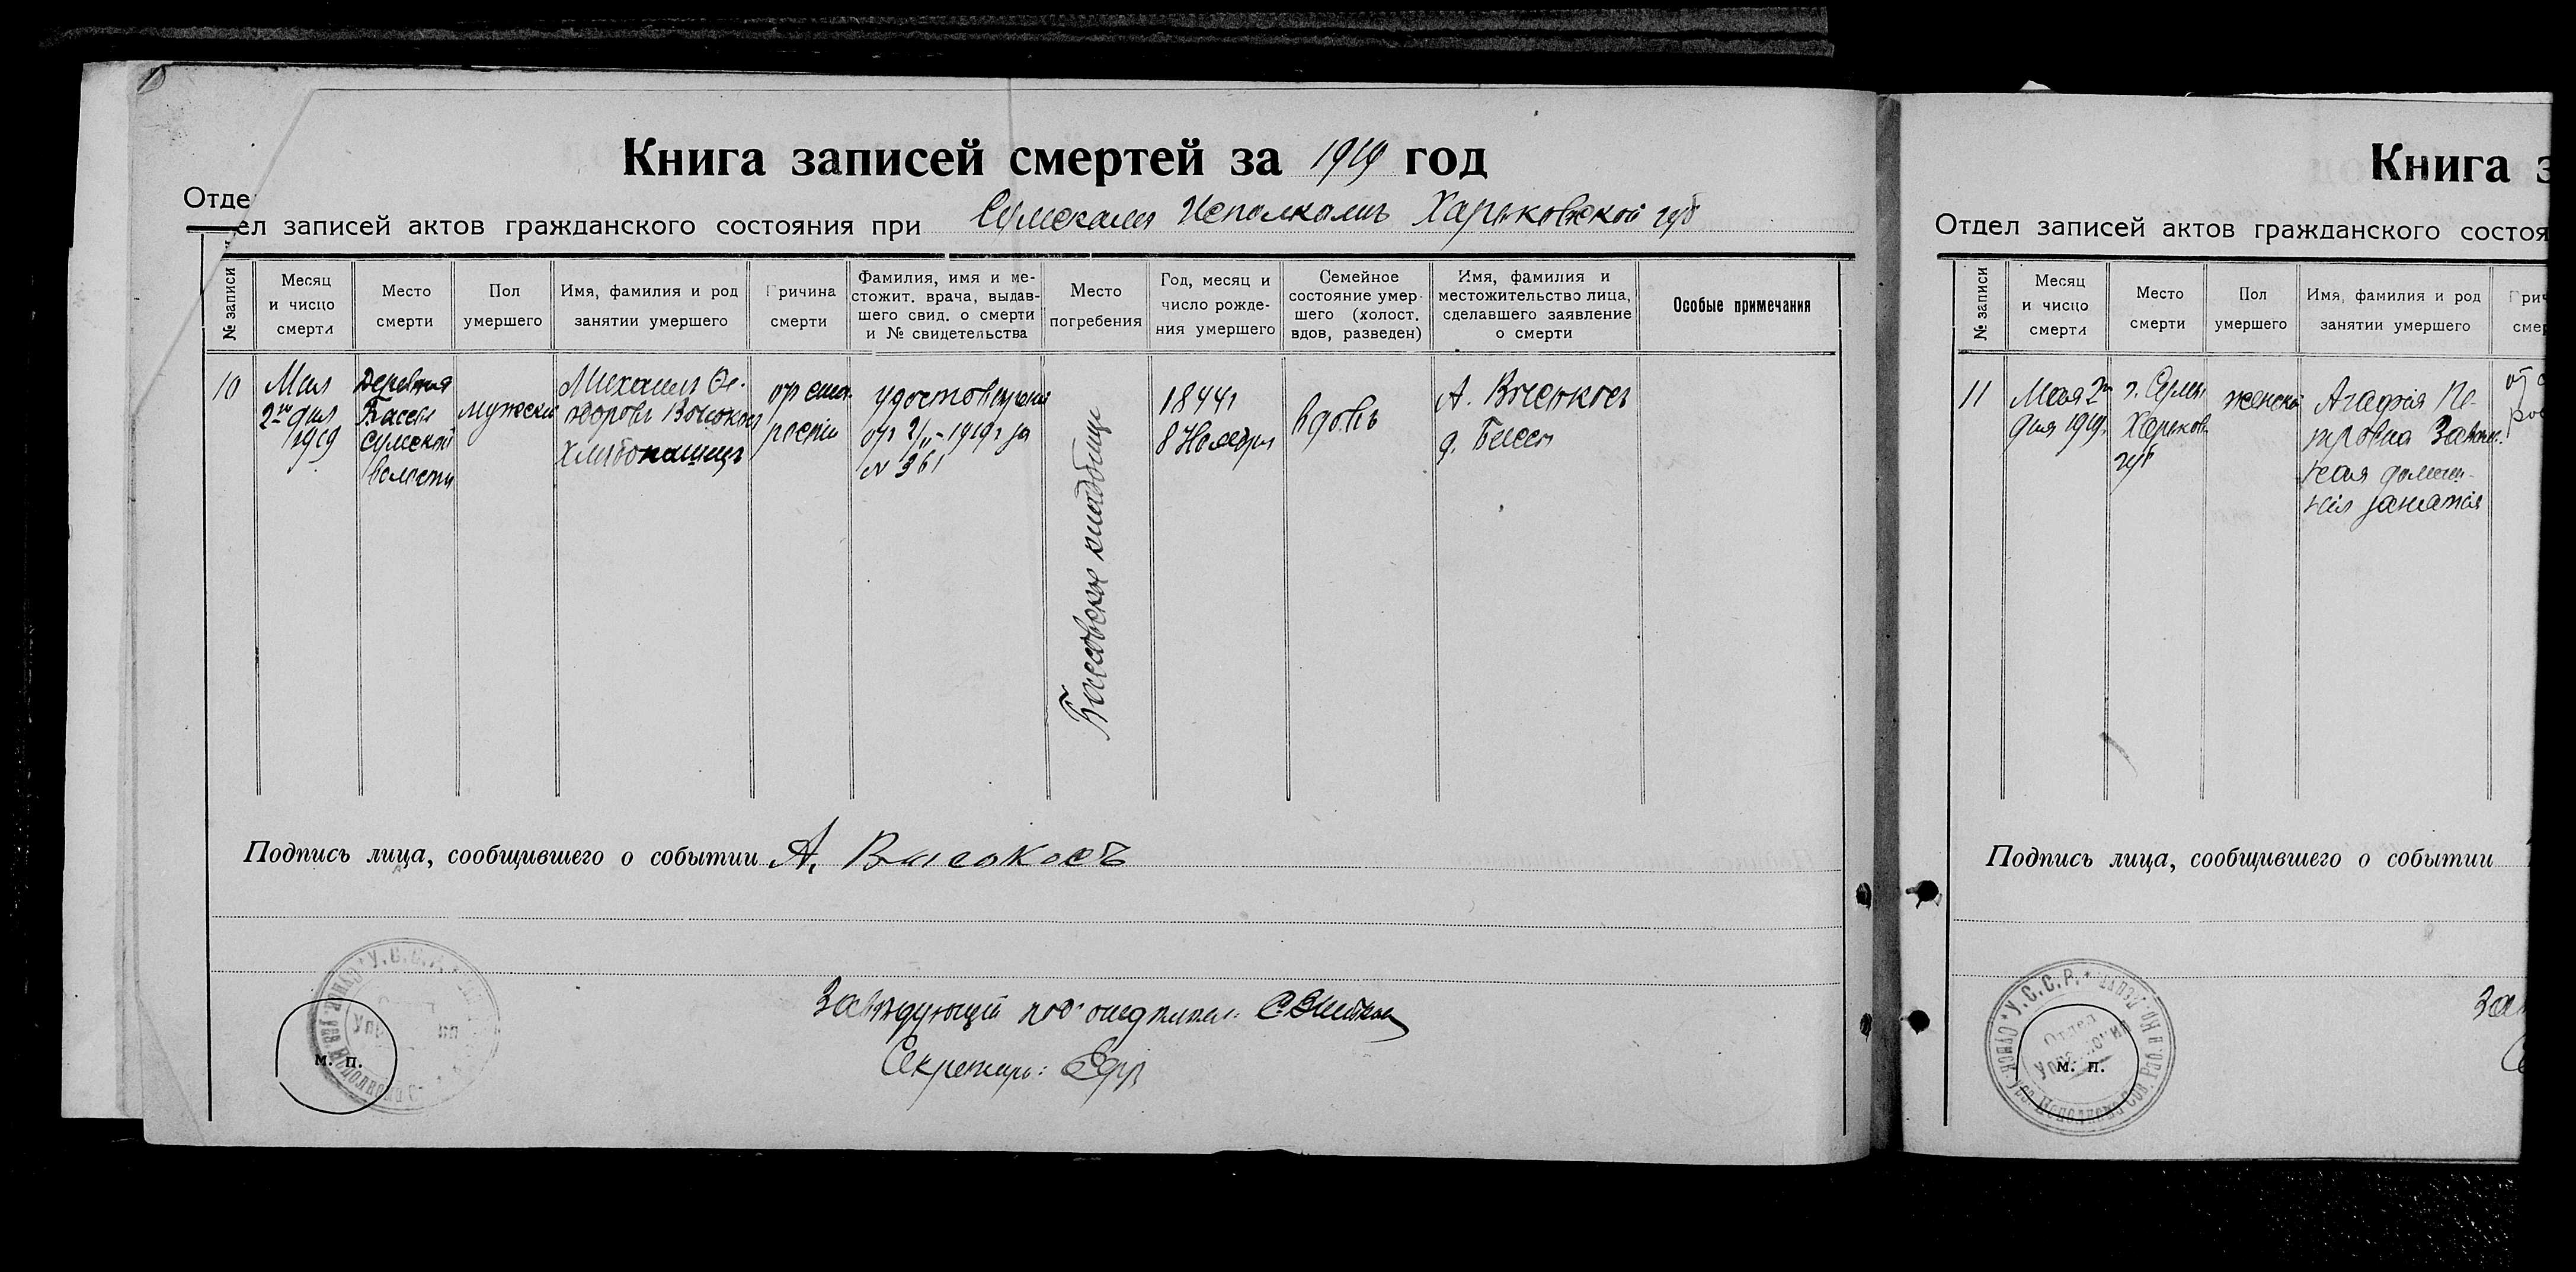 Книга записей смертей за 1919 год
Отде
ел записей актов гражданского состояния при Сумскамъ Исполкамъ Харьковской губ
№ записи
Месяц
и чисцо
смерти
Место
смерти
Пол
умершего
Имя, фамилия и род
занятии умершего
Причина
смерти
Фамилия, имя и ме-
стожит. врача, выдав-
шего свид. о смерти
и № свидетельства
Место
погребения
Год, месяц и
число рожде-
ния умершего
Семейное
состояние умер-
шего (холост.
вдов, разведен)
Имя, фамилия и
местожительство лица,
сделавшего заявление
о смерти
Особые примечания
10
Мая
2го дня
1919
Деревня
Бассы
Сумской
волости
мужеск
Михаилъ Фе-
одоровъ Высокос
хлибопашецъ
от ста-
рости
удостоверение
от 2/V-1919г за
№ 361
Бассовское кладбище
1844г
8 Ноября
вдовъ
А. Высокосъ
д. Бассы
Подпись лица, сообщившего о событии А. Высокосъ
Заведующий
Секретарь:
м. п.
Книга з
Отдел записей актов гражданского состоя
№ записи
Месяц
и чисцо
смерти
Место
смерти
Пол
умершего
Имя, фамилия и род
занятии умершего
Прич
смер
11
Мая 2го
дня 1919г.
г. Сумы
Харьков.
губ
женской
Агафія Пе-
тровна
домаш-
нія занятія
от с
рос
Подпись лица, сообщившего о событии
У.С.С.Р.
Отдел
м. п.
За